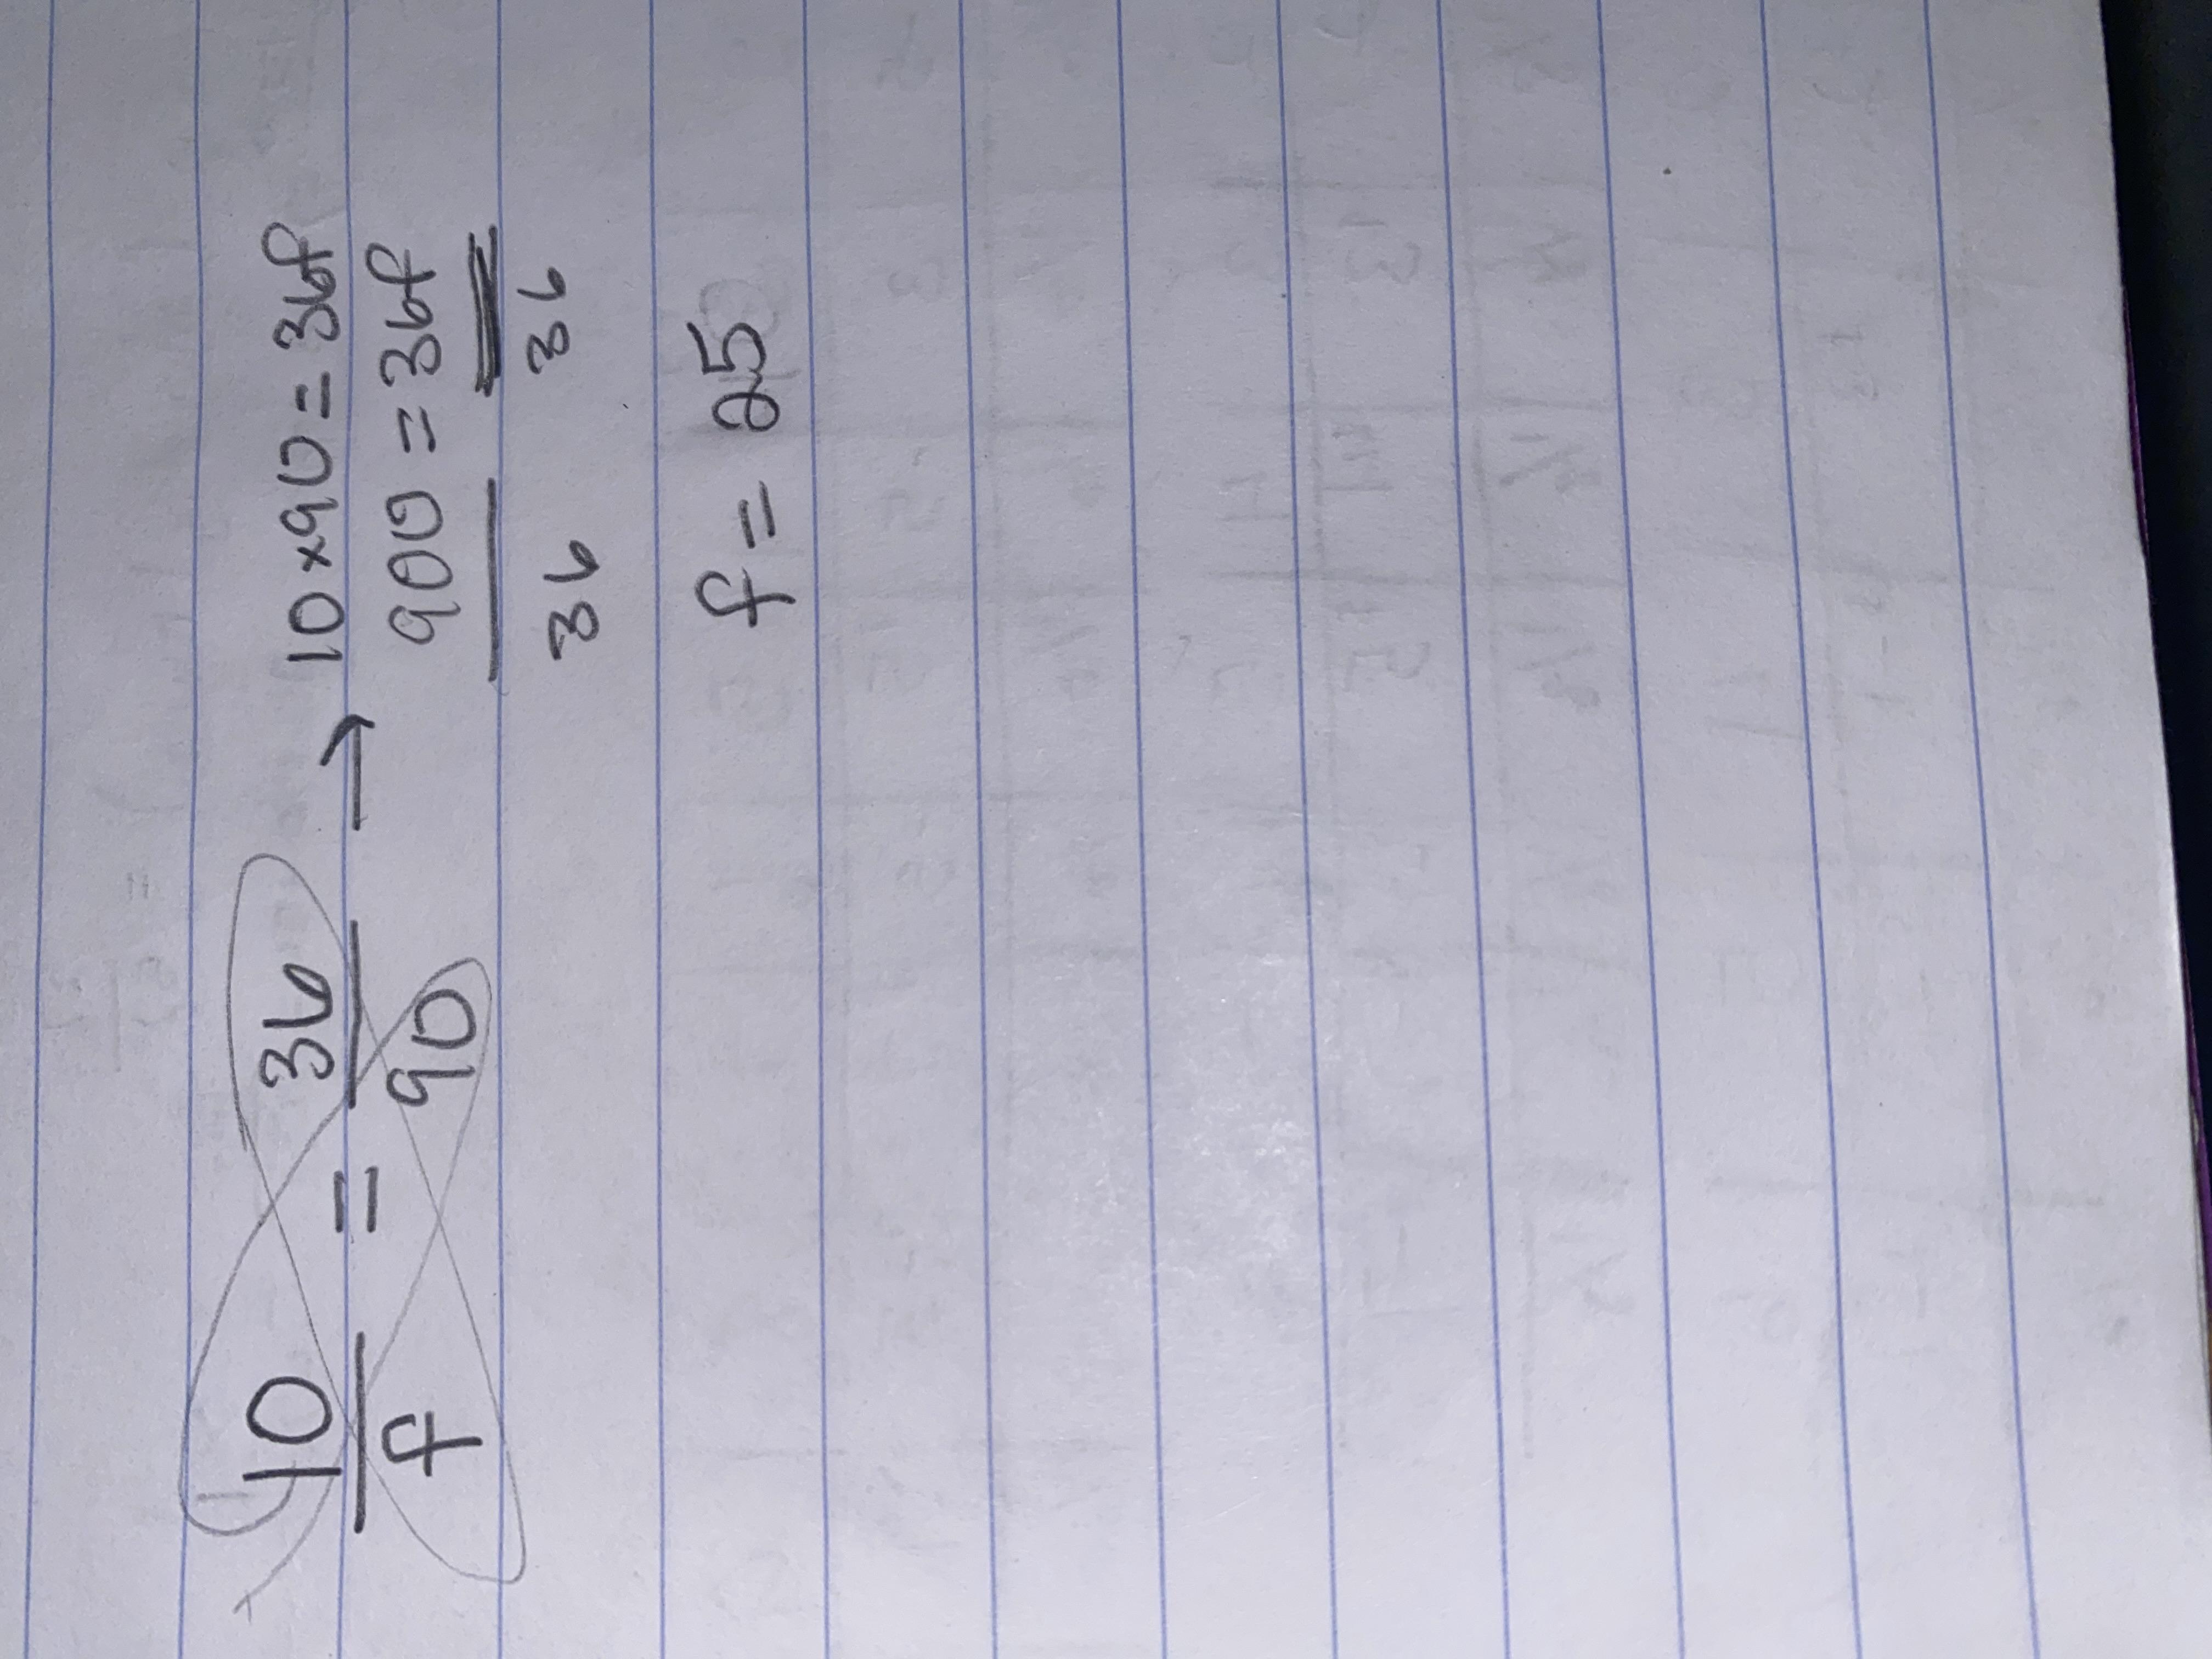 10/f = 36/90 → 10×90=36f
900 = 36f
36 36
f = 25